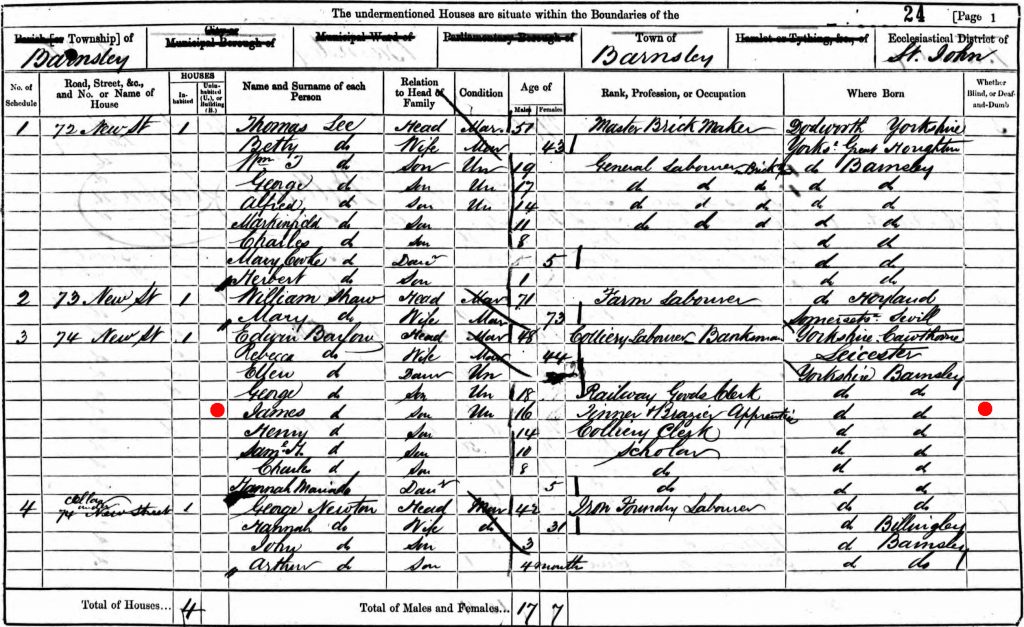 The undermentioned Houses are situate within the Boundaries of the
24 [Page 1
Parish [or Township] of
Barnsley
City or Municipal Borough of
Municipal Ward of
Parliamentary Borough of
Town of
Barnsley
Hamlet or Tything, &c., of
Ecclesiastical District of
St. John.
No. of Schedule
Road, Street, &c., and No. or Name of House
HOUSES
Inhabited
Uninhabited (U.), or Building (B.)
Name and Surname of each Person
Relation to Head of Family
Condition
Age of
Males
Females
Rank, Profession, or Occupation
Where Born
Whether Blind, or Deaf-and-Dumb
1 72 New St 1 Thomas Lee Head Mar. 51 Master Brick Maker Dodworth Yorkshire
Betty do Wife Mar 43 Yorks. Great Houghton
Wm T do Son Un 19 General Labourer Brick do Barnsley
George do Son Un 17 d d d d d
Alfred do Son Un 14 d d d d d
Markinfield do Son 11 d d d d d
Charles do Son 8 d d
Mary Cooke do Daur 5 do do
Herbert do Son 1 do do
2 73 New St 1 William Shaw Head Mar 71 Farm Labourer do Hoyland
Mary do Wife Mar 73 Somersets.
3 74 New St 1 Edwin Barlow Head Mar 48 Colliery Labourer Banksman Yorkshire Cawthorne
Rebecca do Wife Mar 44 Leicester
Ellen d Daur Un Yorkshire Barnsley
George d Son Un 18 Railway Goods Clerk d d
James d Son Un 16 Tinner & Brazier Apprentice d d
Henry d Son 14 Colliery Clerk d d
Saml H. d Son 10 Scholar d d
Charles d Son 8 do d d
Hannah Maria do Daur 5 do d do
4 74 New Street 1 George Newton Head Mar 42 Iron Foundry Labourer do do
Hannah do Wife do 31 d Billingley
John do Son 3 d Barnsley
Arthur do Son 4 month d do
Total of Houses... 4 Total of Males and Females... 17 7